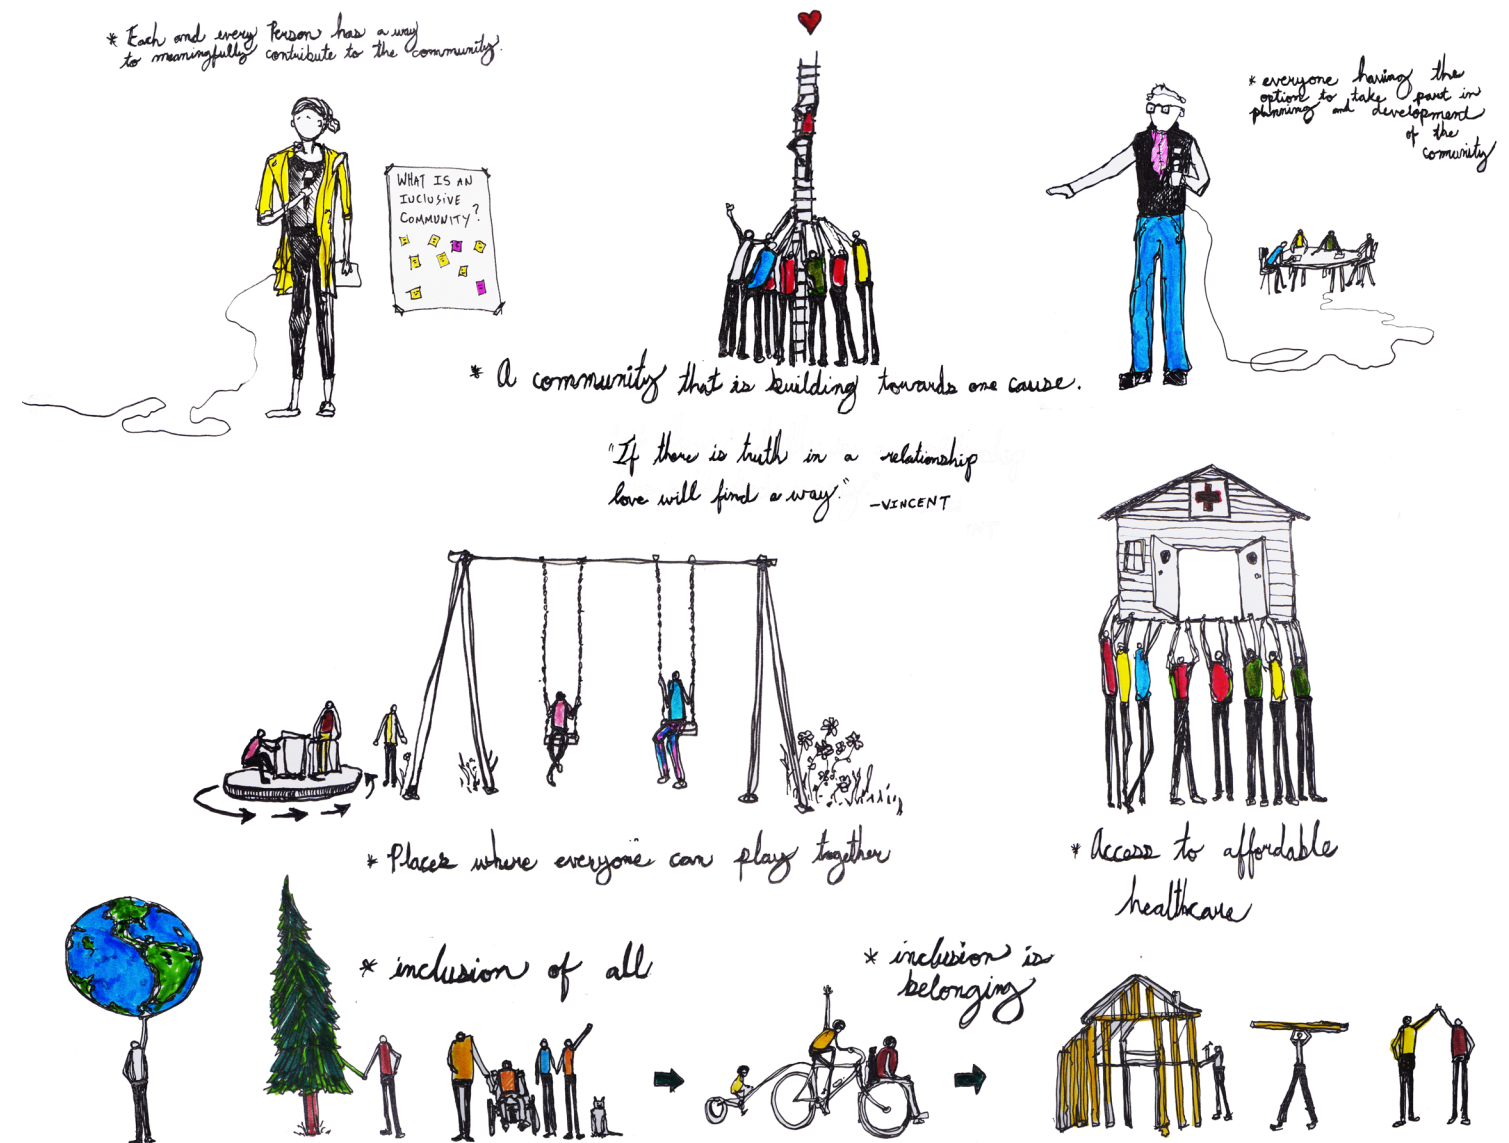 * Each and every Person has a way
to meaningfully contribute to the community.
WHAT IS AN
INCLUSIVE
COMMUNITY?
* everyone having the
option to take part in
planning and development
of the
community
* A community that is building towards one cause.
"If there is truth in a relationship
love will find a way."
-VINCENT
* Places where "everyone" can play together
* Access to affordable
healthcare
* inclusion of all
* inclusion is
belonging